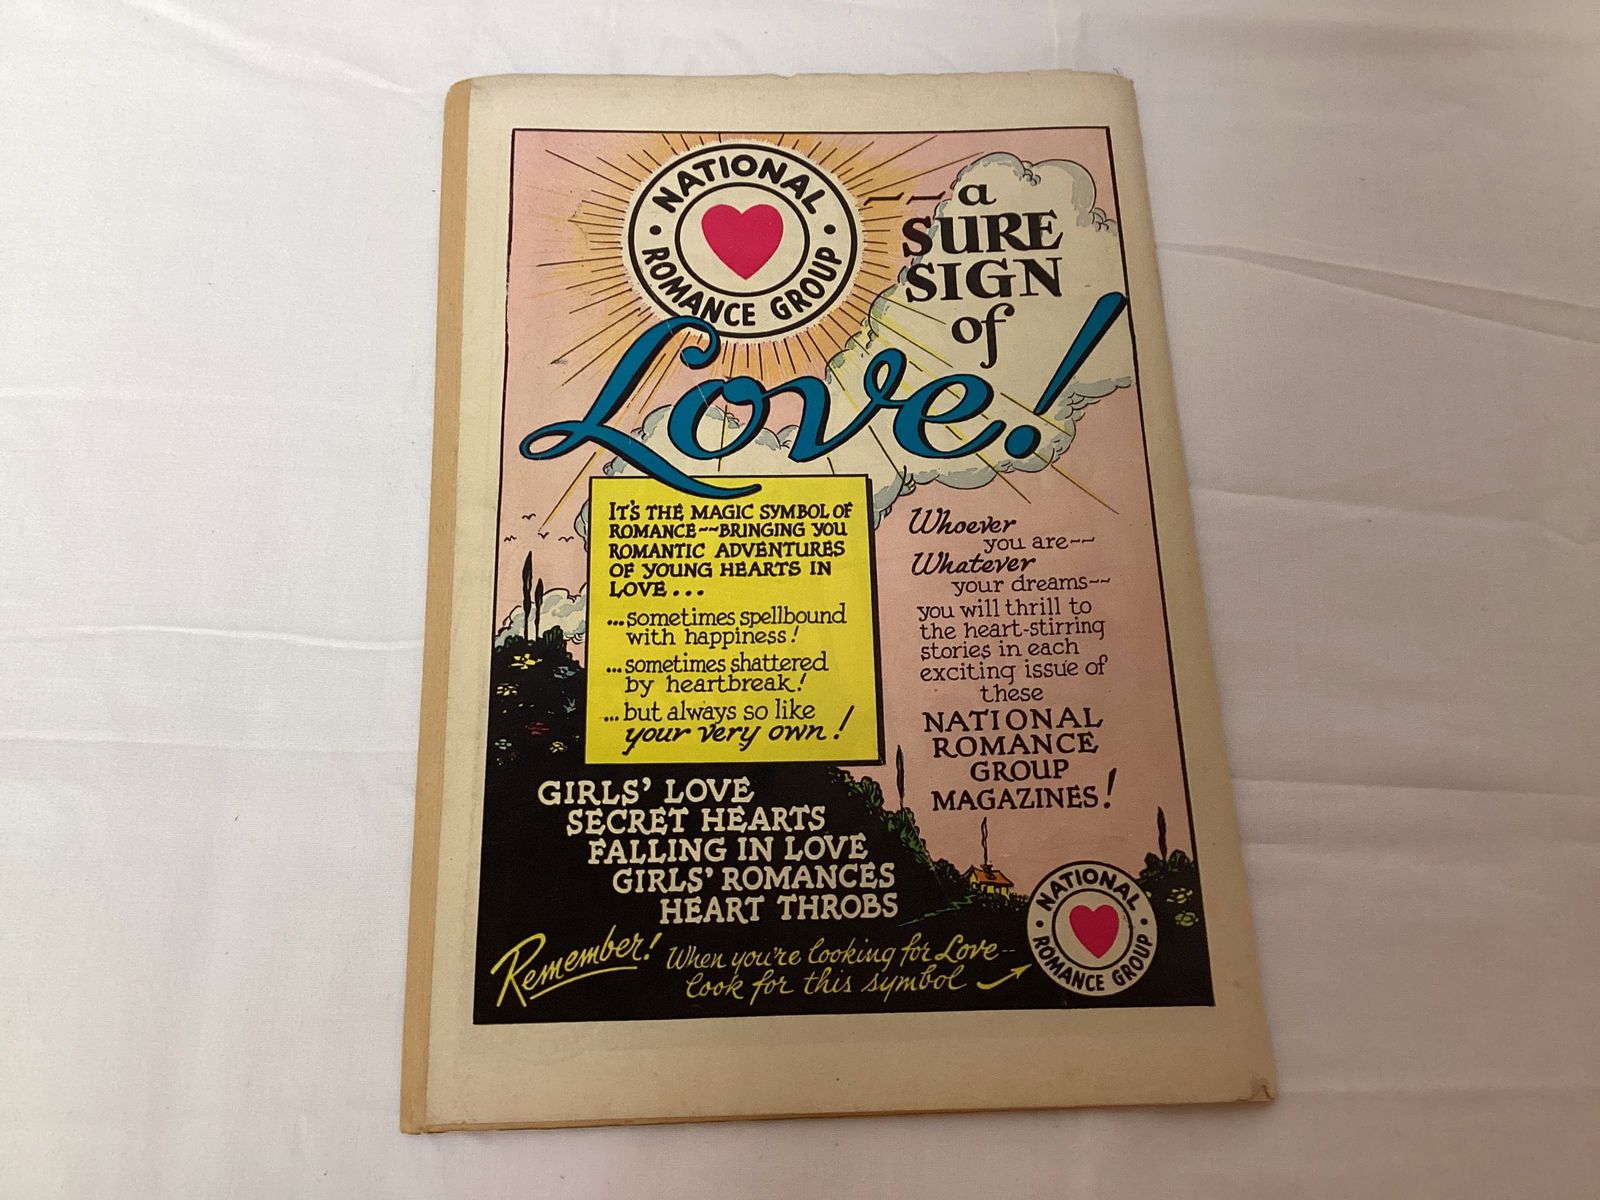 NATIONAL
ROMANCE GROUP
~~a
SURE
SIGN
of
Love!
IT'S THE MAGIC SYMBOL OF
ROMANCE~~BRINGING YOU
ROMANTIC ADVENTURES
OF YOUNG HEARTS IN
LOVE...
...sometimes spellbound
with happiness!
...sometimes shattered
by heartbreak!
...but always so like
your very own!
Whoever
you are~~
Whatever
your dreams~~
you will thrill to
the heart-stirring
stories in each
exciting issue of
these
NATIONAL
ROMANCE
GROUP
MAGAZINES!
GIRLS' LOVE
SECRET HEARTS
FALLING IN LOVE
GIRLS' ROMANCES
HEART THROBS
Remember! When you're looking for Love--
look for this symbol
NATIONAL
ROMANCE GROUP